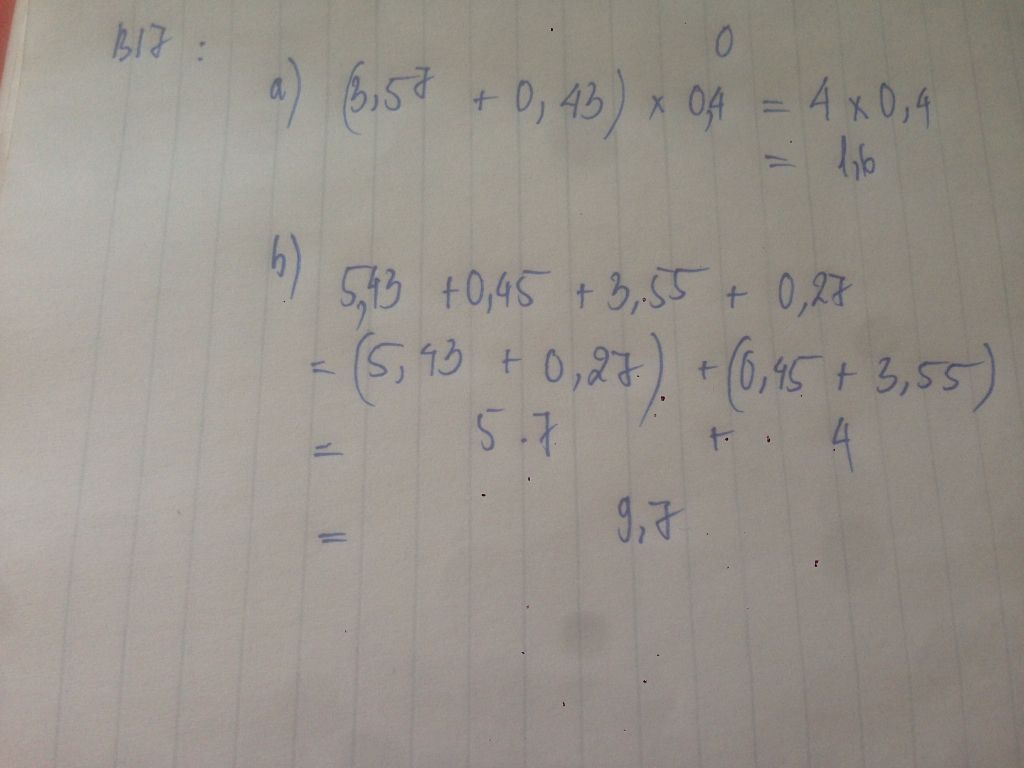 B17 :
0
a) (3,57 + 0,43) × 0,4 = 4 × 0,4
= 1,6
b)
5,43 + 0,45 + 3,55 + 0,27
= (5,43 + 0,27) + (0,45 + 3,55)
= 5.7 + 4
= 9,7